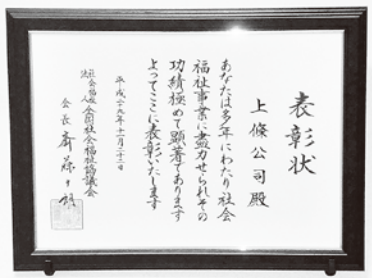 表彰状
上條公司殿
あなたは多年にわたり社会
福祉事業に盡力せられその
功績極めて顕著であります
よってここに表彰いたします
平成二十九年十一月二十二日
社会福祉法人 全国社会福祉協議会
会長 斎藤十朗